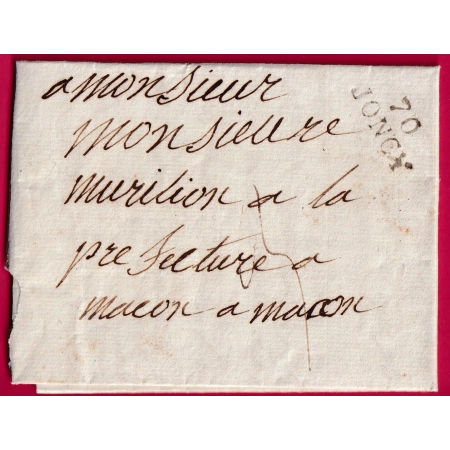 a monsieur
monsieure
murilion a la
prefecture a
macon a macon
70
JONCY